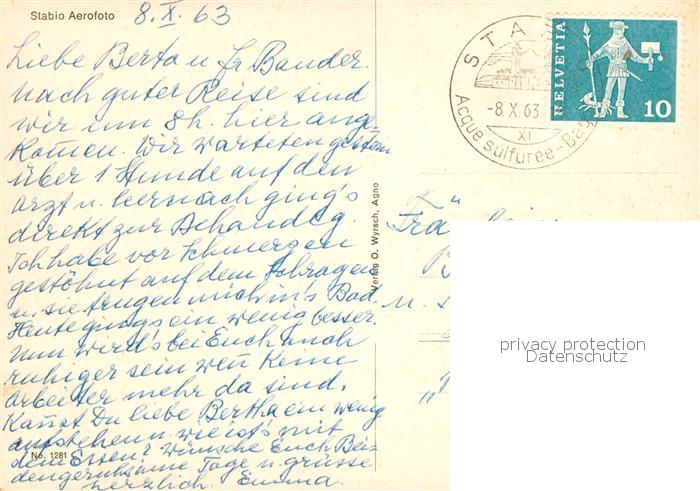 Stabio Aerofoto
8.X.63
Liebe Berta u Fr Bander.
Nach guter Reise sind
wir um 8 h. hier ange-
komen. Wir warteten gestern
über 1 Stunde auf den
Arzt u. hernach ging's
direkt zur Behandlg.
Ich habe vor Schmerzen
gestöhnt auf dem Schragen
u. sie trugen mich in's Bad.
Heute ging's ein wenig besser.
Nun wird's bei Euch auch
ruhiger sein wen Keine
Arbeiter mehr da sind.
Kanst Du liebe Bertha ein wenig
aufstehen u. wie ist's mit
dem Essen? Wünsche Euch Bei-
den geruhsame Tage u. grüsse
herzlich Emma.
No. 1281
Verlag O. Wyrsch, Agno
STA
-8.X.63
XI
Acque sulfuree-Bag
HELVETIA
10
Fräulein
u.
privacy protection
Datenschutz